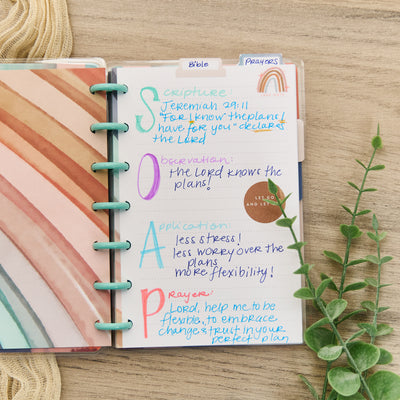 Bible
PRAYERS
Scripture:
Jeremiah 29:11
"For I know" the plans I
have for you" declares
the Lord
Observation:
the Lord knows the
plans!
LET GO
AND LET
Application:
less stress!
less worry over the
plans
more flexibility!
Prayer:
Lord, help me to be
flexible, to embrace
change & trust in your
perfect plan